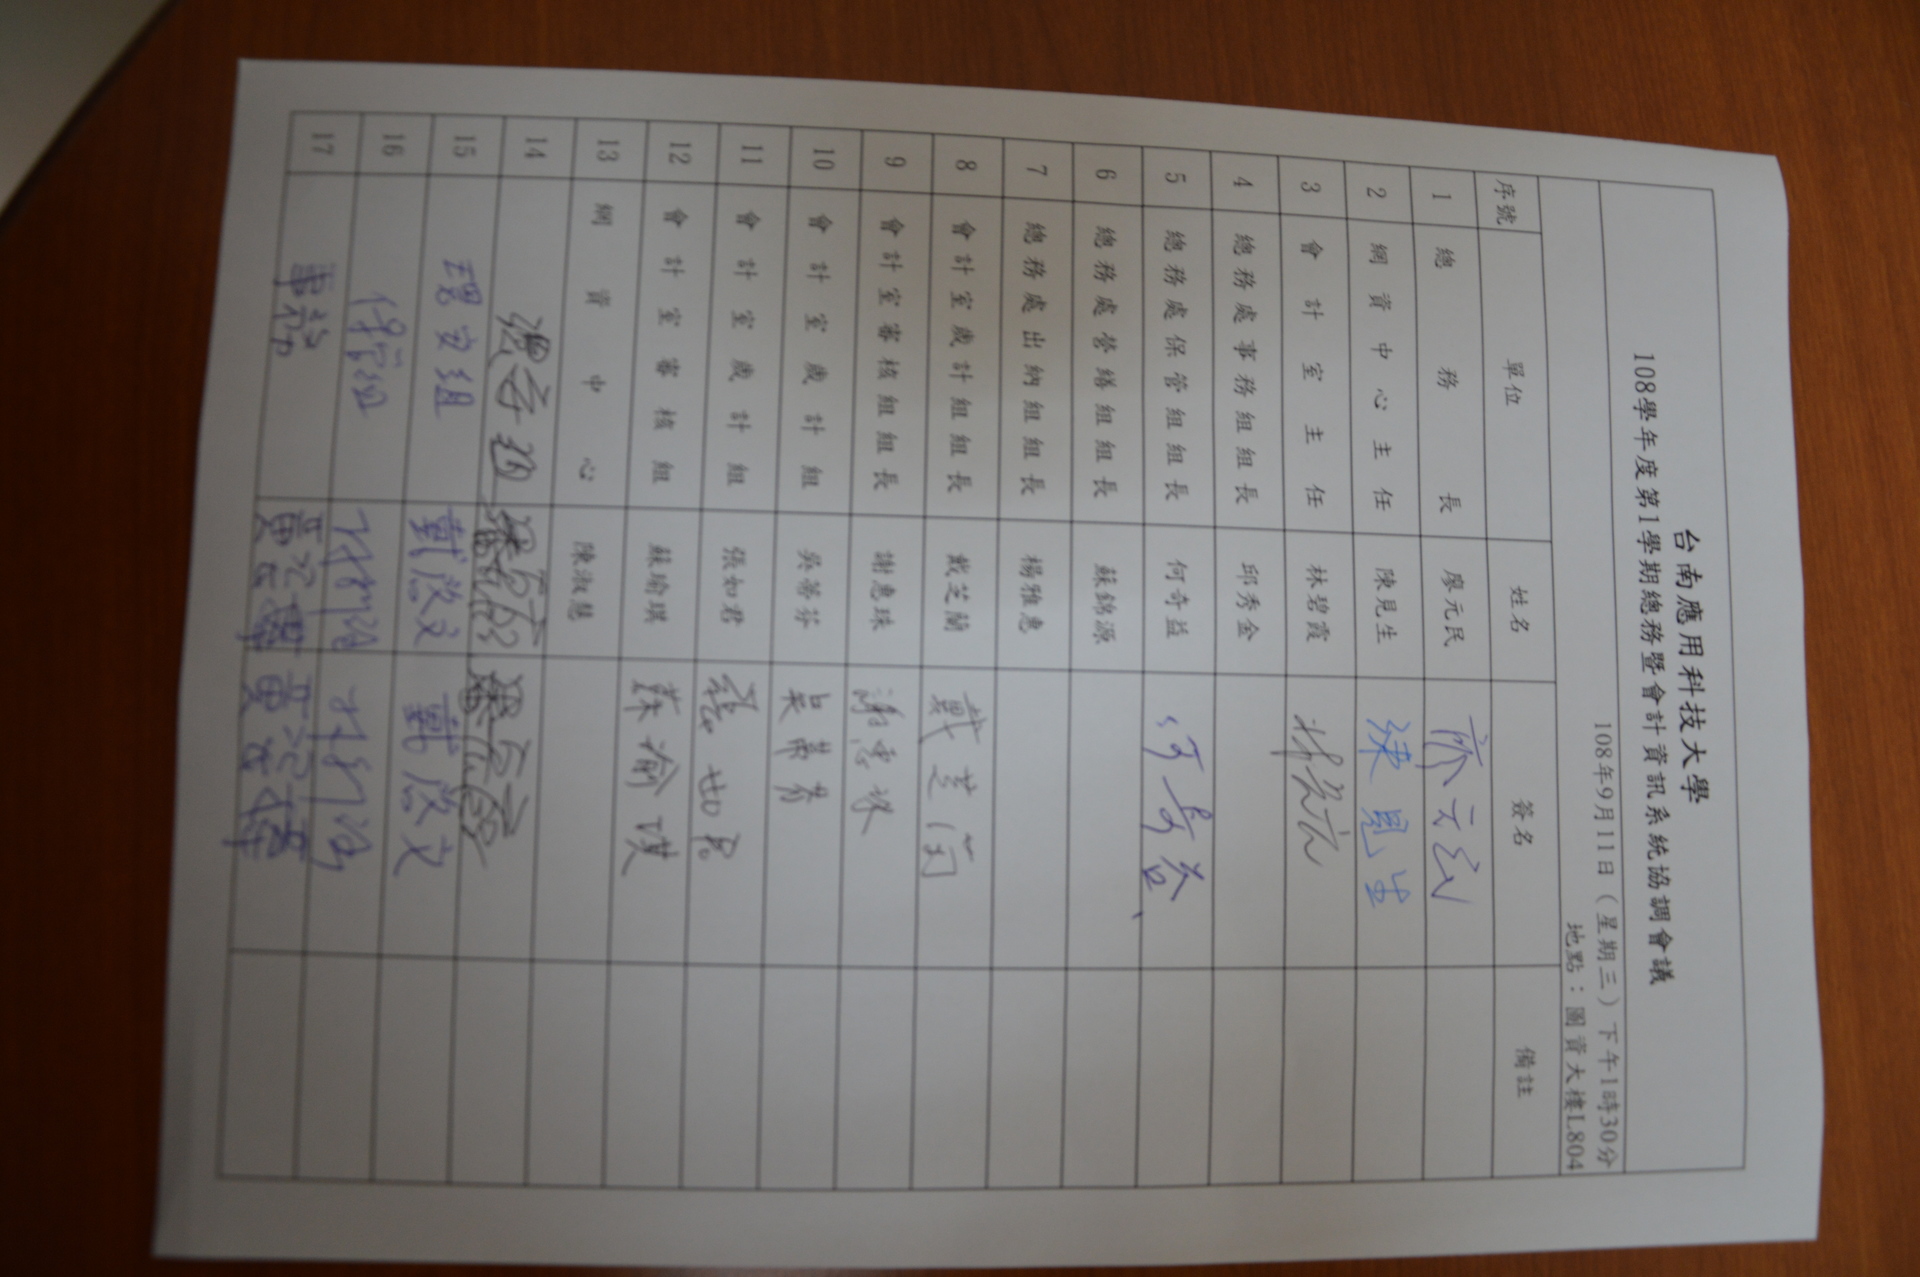 台南應用科技大學
108學年度第1學期總務暨會計資訊系統協調會議
108年9月11日（星期三）下午1時30分
地點：圖資大樓L804
序號 單位 姓名 簽名 備註
1 總務長 廖元民 廖元民
2 網資中心主任 陳見生 陳見生
3 會計室主任 林碧霞
4 總務處事務組組長 邱秀金
5 總務處保管組組長 何奇益 何奇益
6 總務處營繕組組長 蘇錦源
7 總務處出納組組長 楊雅惠
8 會計室歲計組組長 戴芝蘭 戴芝蘭
9 會計室審核組組長 謝惠珠 謝惠珠
10 會計室歲計組 吳蒂芬 吳蒂芬
11 會計室歲計組 張如君 張如君
12 會計室審核組 蘇瑜琪 蘇瑜琪
13 網資中心 陳淑慧
14
15 環安組 戴啟文 戴啟文
16 保管組
17 事務